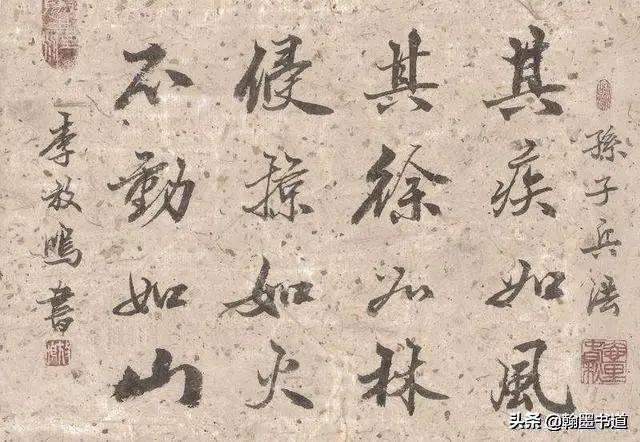 孫子兵法
其疾如風
其徐如林
侵掠如火
不動如山
李放鳴書
头条 @翰墨书道